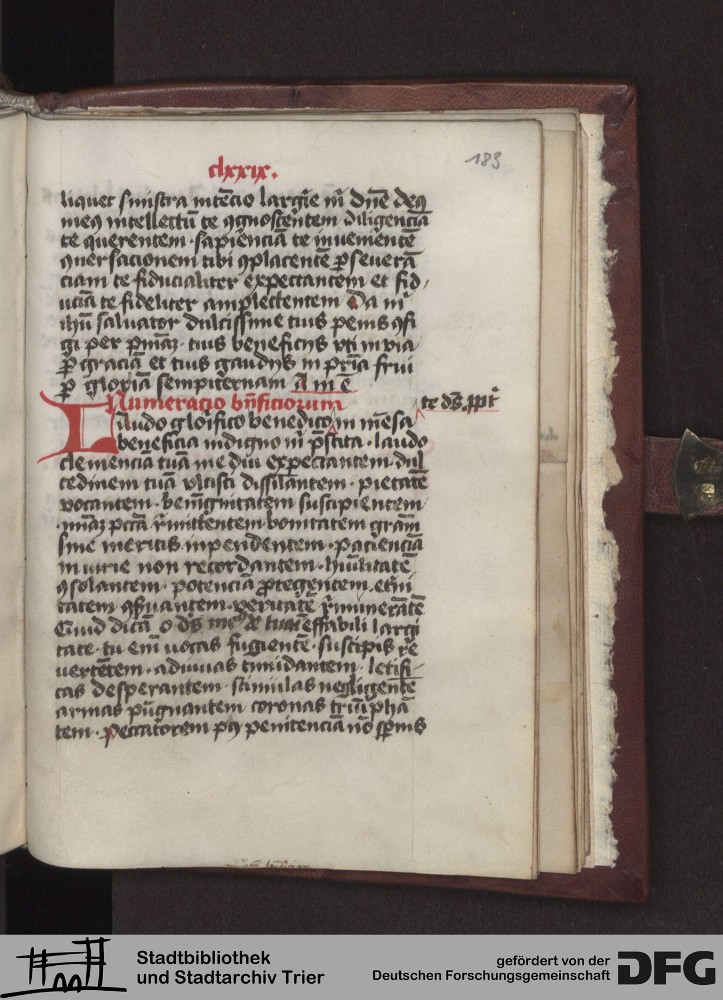 clxxix.
183
liquet sinistra intēcio largr̄e m̄ dn̄e deꝯ
meꝯ intellectū te ꝯgnoscentem diligenciā
te querentem · sapienciā te inuenientē
ꝯuersacionem tibi ꝯplacentē ꝑseuerā
ciam te fiducialiter expectantem et fid
uciā te fideliter amplectentem Da m̄
ih̄u saluator dulcissime tuis penis ꝯfi
gi per pn̄iaꝫ · tuis beneficijs vti in via
ꝑ graciā et tuis gaudijs in pr̄ia frui
ꝑ gloriā sempiternam A m ē
Numeracio bn̄ficiorum
te ds̄ ꝓpt̄
Laudo glorifico benedico in mēsa
beneficia indigno m̄ pr̄stita · laudo
clemenciā tuā me diu expectantem · dul
cedinem tuā vlcisci dissilantem · pietatē
vocantem · benignitatem suscipientem
· mīaꝫ pcc̄ā r̄mittentem bonitatem grām
sine meritis inpendentem · pacienciā
iniurie non recordantem · hūilitatē
ꝯsolantem · potenciā ꝓtegentem · et̄ni
tatem ꝯẜuantem · veritatē r̄munerātē
Quid dicā o ds̄ meꝯ de tua īeffabili largi
tate · tu em̄ vocas fugientē · suscipis re
uertētem · adiuuas timidantem · letifi
cas desperantem · stimulas negligentē
armas pūgnantem coronas triūphā
tem · peccatorem pꝯ penitenciā nō sꝑnis
Stadtbibliothek
und Stadtarchiv Trier
gefördert von der
Deutschen Forschungsgemeinschaft
DFG